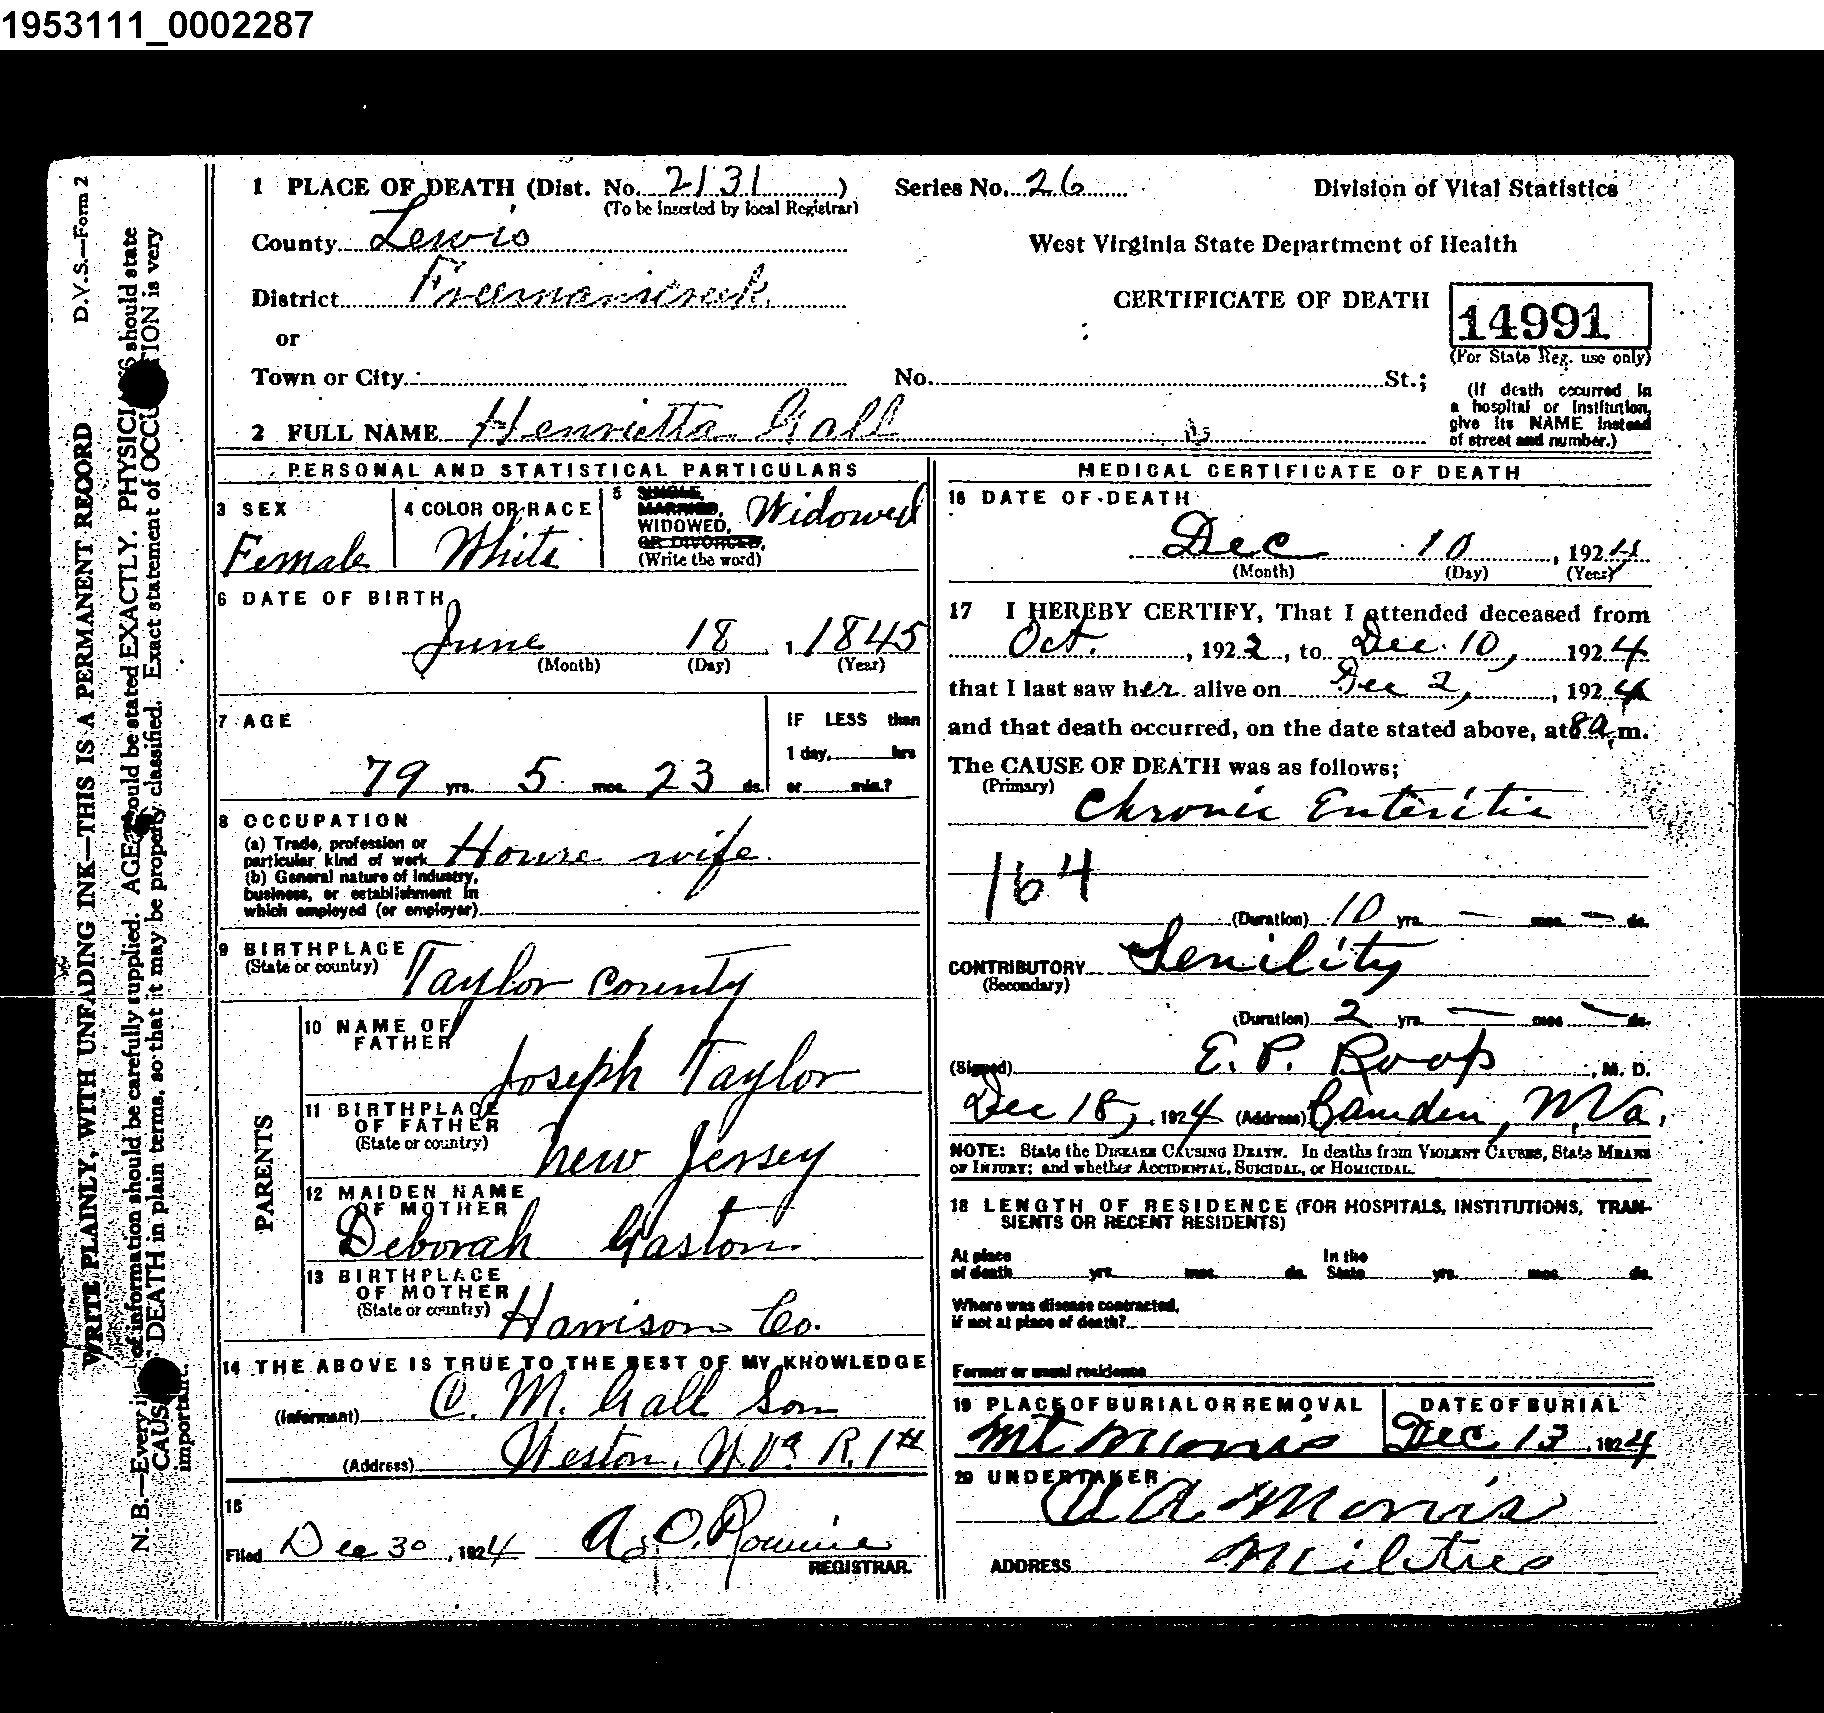 1953111_0002287
1 PLACE OF DEATH (Dist. No. 2131) Series No. 26 Division of Vital Statistics
(To be inserted by local Registrar)
County Lewis West Virginia State Department of Health
District Freemanscreek CERTIFICATE OF DEATH 14991
or (For State Reg. use only)
Town or City No. St.;
(If death occurred in
a hospital or institution,
give its NAME instead
of street and number.)
2 FULL NAME Henrietta Gall
PERSONAL AND STATISTICAL PARTICULARS
3 SEX
Female
4 COLOR OR RACE
White
5 SINGLE,
MARRIED,
WIDOWED, Widowed
OR DIVORCED,
(Write the word)
6 DATE OF BIRTH
June 18, 1 1845
(Month) (Day) (Year)
7 AGE
79 yrs. 5 mos. 23 ds.
IF LESS than
1 day, hrs
or min.?
8 OCCUPATION
(a) Trade, profession or
particular kind of work House wife
(b) General nature of Industry,
business, or establishment in
which employed (or employer)
9 BIRTHPLACE
(State or country) Taylor County
PARENTS
10 NAME OF
FATHER
Joseph Taylor
11 BIRTHPLACE
OF FATHER
(State or country) New Jersey
12 MAIDEN NAME
OF MOTHER
Deborah Gaston
13 BIRTHPLACE
OF MOTHER
(State or country) Harrison Co.
14 THE ABOVE IS TRUE TO THE BEST OF MY KNOWLEDGE
(Informant) C. M. Gall Son
(Address) Weston, W Va R. 1
15
Filed Dec 30, 1924
REGISTRAR.
MEDICAL CERTIFICATE OF DEATH
16 DATE OF DEATH
Dec 10, 1924
(Month) (Day) (Year)
17 I HEREBY CERTIFY, That I attended deceased from
Oct., 1922, to Dec. 10, 1924
that I last saw her alive on Dec 2, 1924
and that death occurred, on the date stated above, at 8 a, m.
The CAUSE OF DEATH was as follows;
(Primary) Chronic Enteritis
164
(Duration) 10 yrs. — mos — ds.
CONTRIBUTORY Senility
(Secondary)
(Duration) 2 yrs. — mos — ds.
(Signed) E. P. Roop, M. D.
Dec 18, 1924 (Address) Camden, W. Va.
NOTE: State the DISEASE CAUSING DEATH. In deaths from VIOLENT CAUSES, State MEANS
OF INJURY; and whether ACCIDENTAL, SUICIDAL, or HOMICIDAL.
18 LENGTH OF RESIDENCE (FOR HOSPITALS, INSTITUTIONS, TRAN-
SIENTS OR RECENT RESIDENTS)
At place In the
of death yrs. mos. ds. State yrs. mos. ds.
Where was disease contracted,
if not at place of death?
Former or usual residence
19 PLACE OF BURIAL OR REMOVAL
Mt Morris
DATE OF BURIAL
Dec 13, 1924
20 UNDERTAKER
Morris
ADDRESS
D.V.S.—Form 2
WRITE PLAINLY, WITH UNFADING INK—THIS IS A PERMANENT RECORD
N. B.—Every of information should be carefully supplied. AGE should be stated EXACTLY. PHYSICIANS should state
CAUSE DEATH in plain terms, so that it may be properly classified. Exact statement of OCCUPATION is very
important.